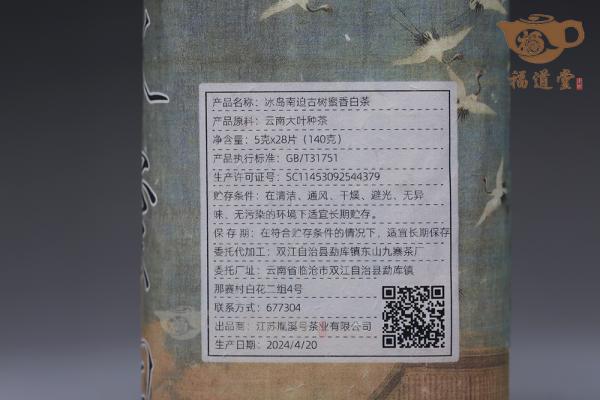 福道堂
产品名称：冰岛南迫古树蜜香白茶
产品原料：云南大叶种茶
净含量：5克x28片（140克）
产品执行标准：GB/T31751
生产许可证号：SC11453092544379
贮存条件：在清洁、通风、干燥、避光、无异
味、无污染的环境下适宜长期贮存。
保 存 期：在符合贮存条件的情况下，适宜长期保存
委托代加工：双江自治县勐库镇东山九寨茶厂
委托厂址：云南省临沧市双江自治县勐库镇
那赛村白花二组4号
联系方式：677304
出品商：江苏胤溪号茶业有限公司
生产日期：2024/4/20